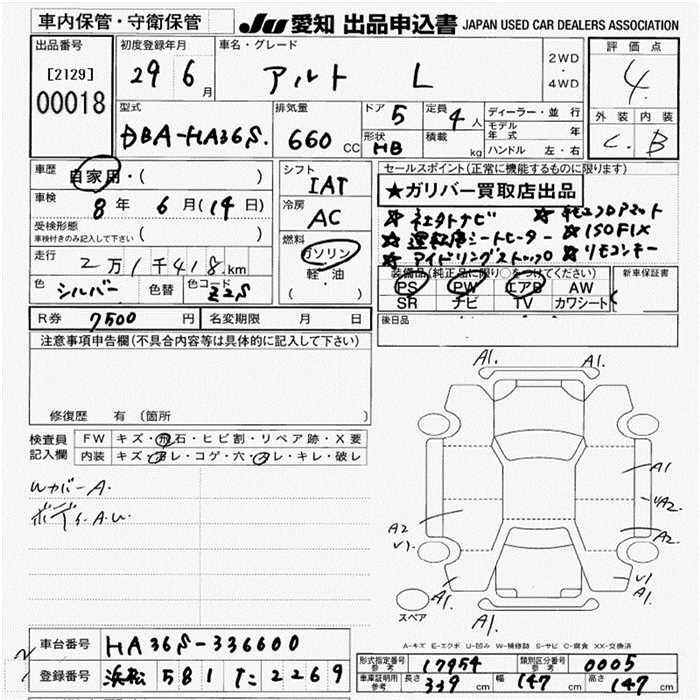 車内保管・守衛保管
JU 愛知 出品申込書 JAPAN USED CAR DEALERS ASSOCIATION
出品番号
[2129]
00018
初度登録年月
29年 6月
車名・グレード
アルト L
2WD
・
4WD
評価点
4
外装 内装
C B
型式
DBA-HA36S
排気量
660 CC
ドア 5
形状 HB
定員 4人
積載 kg
ディーラー・並行
モデル年式 年
ハンドル 左・右
車歴
自家用・( )
車検
8年 6月(14日)
受検形態
車検付きのみ記入して下さい ( )
走行
2万1千418km
色 シルバー 色替 色コード Z2S
シフト
IAT
冷房
AC
燃料
ガソリン
軽・油
( )
セールスポイント(正常に機能するものに限ります)
★ガリバー買取店出品
☆ ネエタトナビ
☆ ISOFIX
☆ 運転席シートヒーター
☆ アイドリングストップ
☆ リモコンキー
装備品(純正品に限り○をつけてください) 新車保証書
PS PW エアB AW
SR ナビ TV カワシート
R券 7500円 名変期限 月 日
後日品
注意事項申告欄(不具合内容等は具体的に記入して下さい)
修復歴 有 〔箇所 〕
検査員記入欄
FW キズ・飛石・ヒビ割・リペア跡・X要
内装 キズ・汚レ・コゲ・穴・スレ・キレ・破レ
Wカバー A.
ボディ A.U
A1. A1.
A1
UA2
A2
A2
U1
A1
U1
A1
スペア
A-キズ E-エクボ U-凹み W-補修跡 S-サビ C-腐食 XX-交換済
車台番号 HA36S-336600
登録番号 浜松 581 た 2269
形式指定番号 参考 17954 類別区分番号 参考 0005
車庫証明用 参考 長さ 339cm 幅 147cm 高さ 147cm